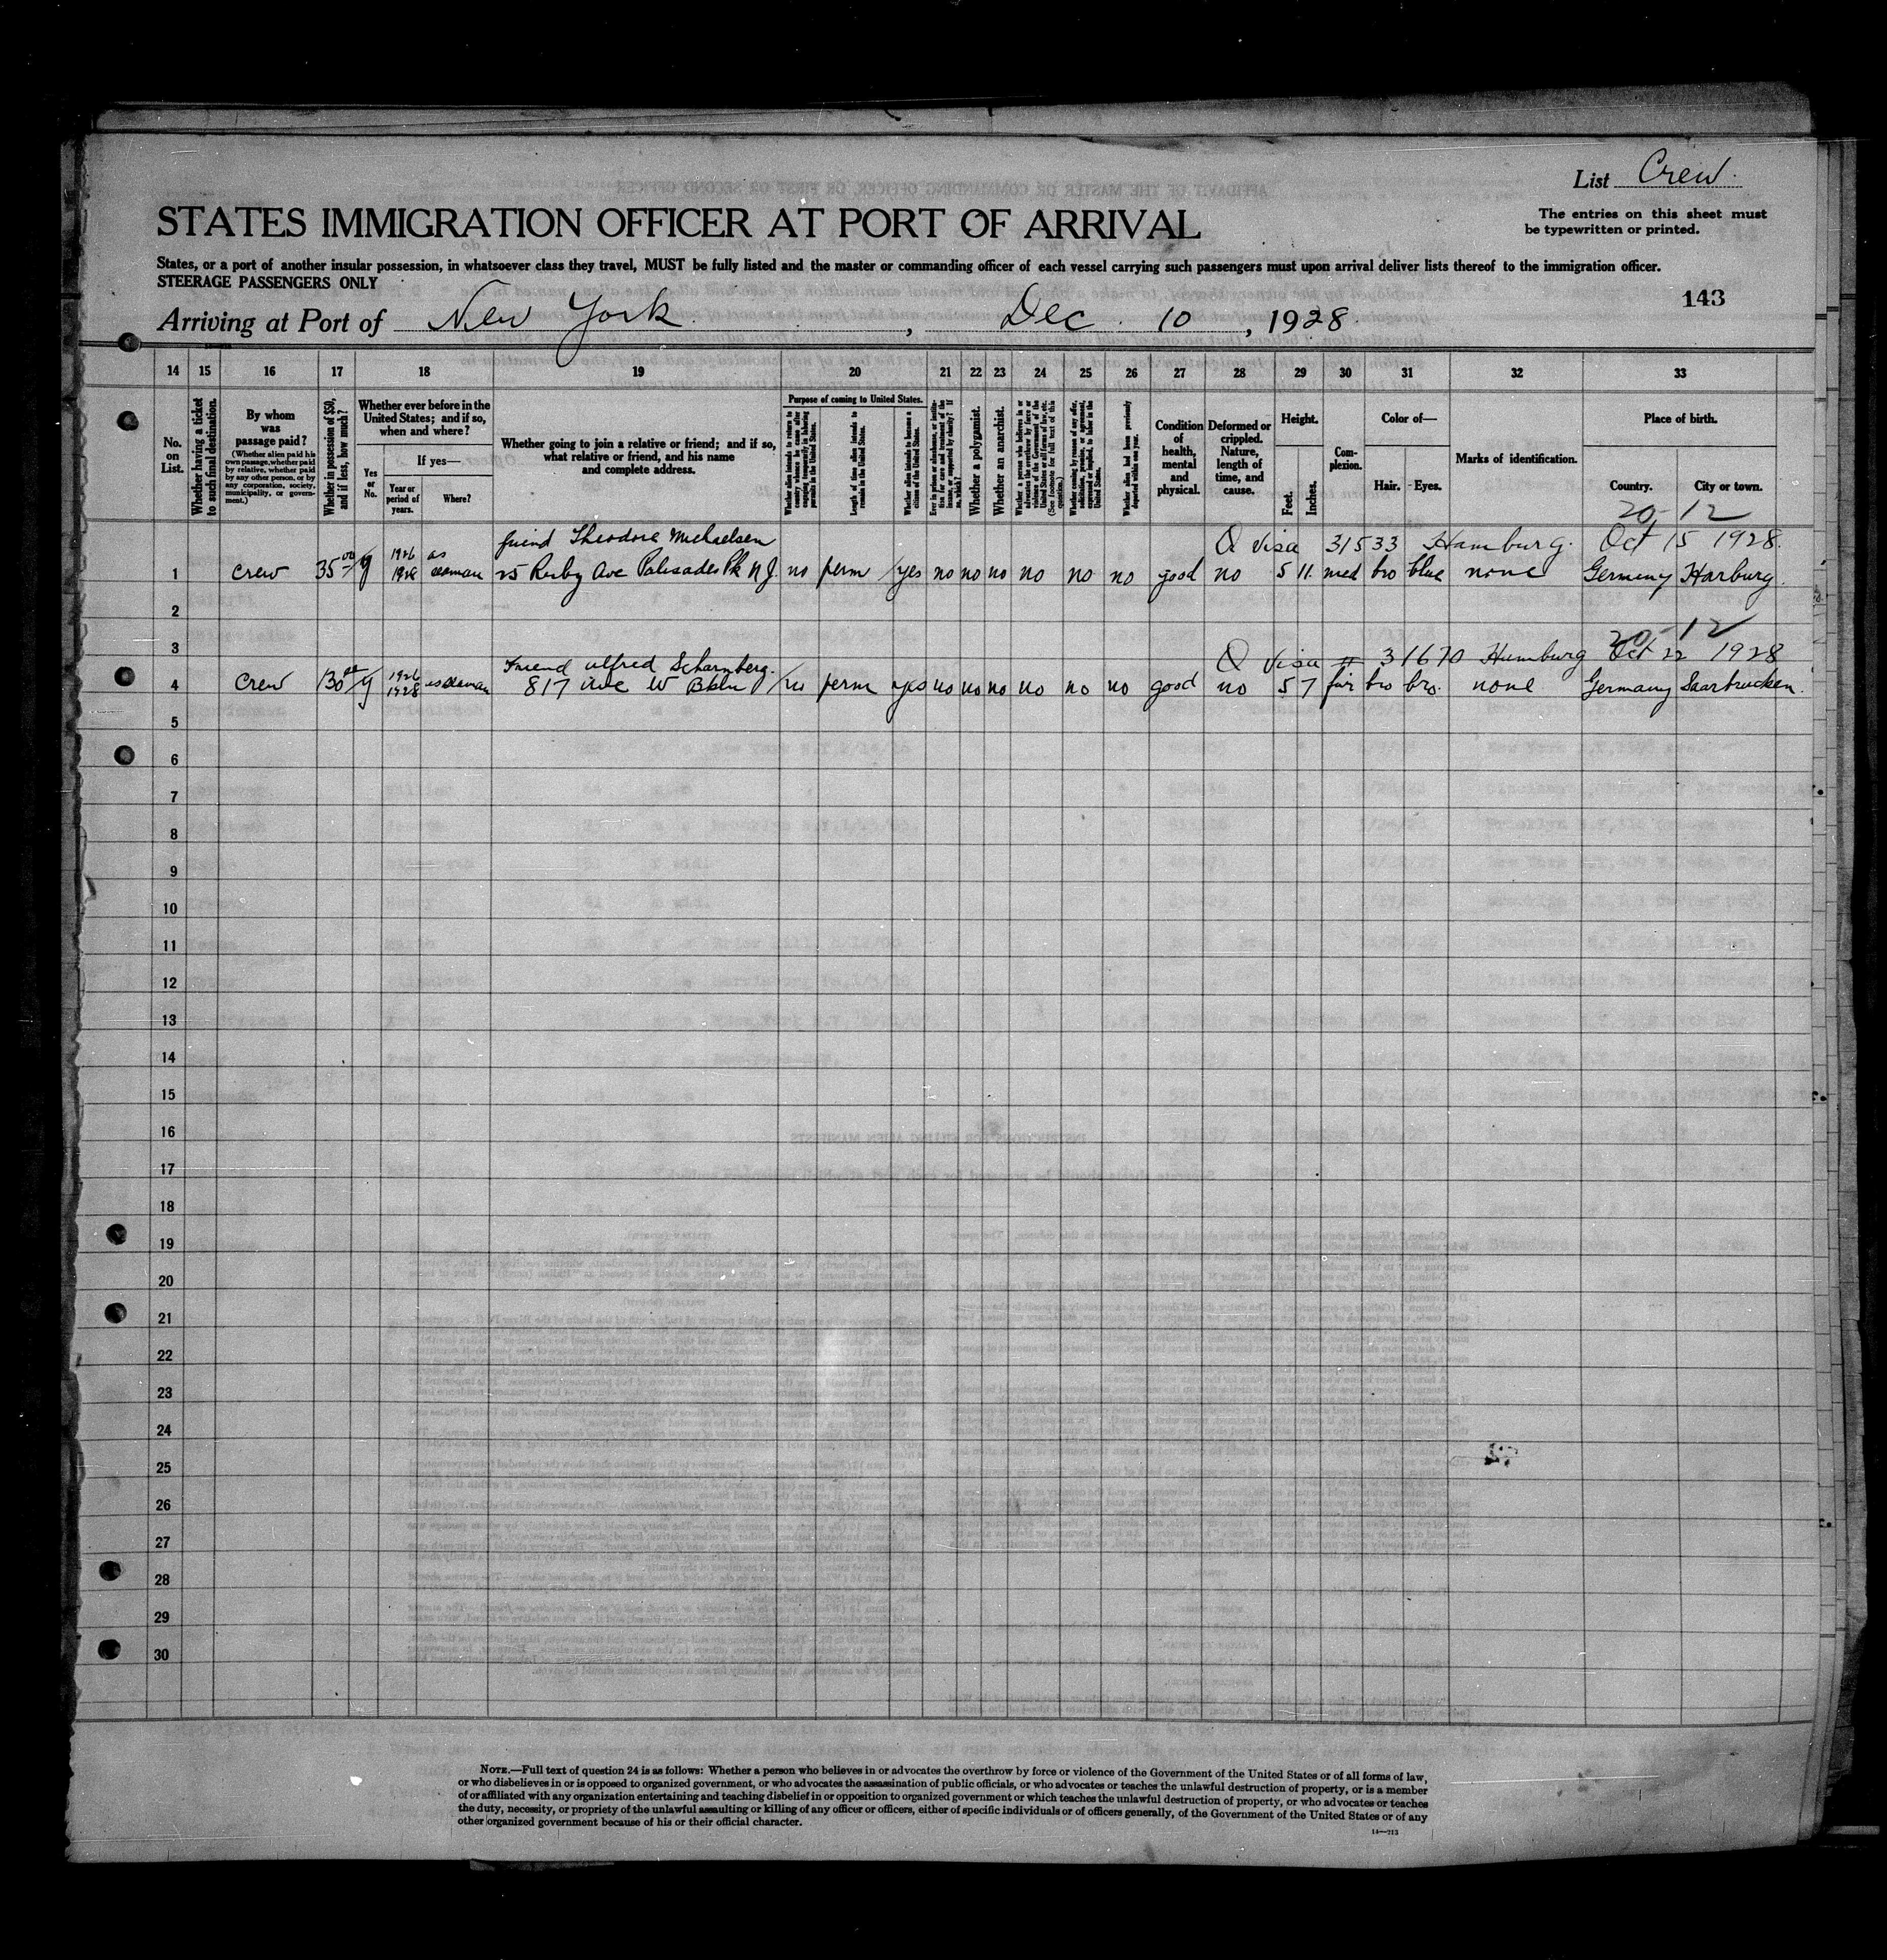 List Crew.
STATES IMMIGRATION OFFICER AT PORT OF ARRIVAL
The entries on this sheet must
be typewritten or printed.
States, or a port of another insular possession, in whatsoever class they travel, MUST be fully listed and the master or commanding officer of each vessel carrying such passengers must upon arrival deliver lists thereof to the immigration officer.
STEERAGE PASSENGERS ONLY
143
Arriving at Port of New York, Dec. 10, 1928.
14 15 16 17 18 19 20 21 22 23 24 25 26 27 28 29 30 31 32 33
No. on List.
Whether having a ticket to such final destination.
By whom was passage paid?
(Whether alien paid his own passage, whether paid by relative, whether paid by any other person, or by any corporation, society, municipality, or government.)
Whether in possession of $50, and if less, how much?
Whether ever before in the United States; and if so, when and where?
Yes or No.
If yes—
Year or period of years.
Where?
Whether going to join a relative or friend; and if so, what relative or friend, and his name and complete address.
Purpose of coming to United States.
Whether alien intends to return to country whence he came after engaging temporarily in laboring pursuits in the United States.
Length of time alien intends to remain in the United States.
Whether alien intends to become a citizen of the United States.
Ever in prison or almshouse, or institution for care and treatment of the insane, or supported by charity? If so, which?
Whether a polygamist.
Whether an anarchist.
Whether a person who believes in or advocates the overthrow by force or violence of the Government of the United States or all forms of law, etc. (See footnote for full text of this question.)
Whether coming by reason of any offer, solicitation, promise, or agreement, expressed or implied, to labor in the United States.
Whether alien had been previously deported within one year.
Condition of health, mental and physical.
Deformed or crippled. Nature, length of time, and cause.
Height.
Feet. Inches.
Complexion.
Color of—
Hair. Eyes.
Marks of identification.
Place of birth.
Country. City or town.
20-12
friend Theodore Michaelsen Q Visa 31533 Hamburg. Oct 15 1928.
1 crew 35 00 y 1926 1928 as seaman 25 Ruby Ave Palisades Pk N.J. no perm yes no no no no no no good no 5 11. med bro blue none Germany Harburg.
2
3
20-12
Friend Alfred Scharnberg. Q Visa # 31670 Hamburg Oct 22 1928
4 Crew 130 y 1926 1928 as seaman 817 Ave W Bkln no perm yes no no no no no no good no 5 7 fair bro bro. none Germany Saarbrucken.
5
6
7
8
9
10
11
12
13
14
15
16
17
18
19
20
21
22
23
24
25
26
27
28
29
30
NOTE.—Full text of question 24 is as follows: Whether a person who believes in or advocates the overthrow by force or violence of the Government of the United States or of all forms of law,
or who disbelieves in or is opposed to organized government, or who advocates the assassination of public officials, or who advocates or teaches the unlawful destruction of property, or is a member
of or affiliated with any organization entertaining and teaching disbelief in or opposition to organized government or which teaches the unlawful destruction of property, or who advocates or teaches
the duty, necessity, or propriety of the unlawful assaulting or killing of any officer or officers, either of specific individuals or of officers generally, of the Government of the United States or of any
other organized government because of his or their official character.
14—213